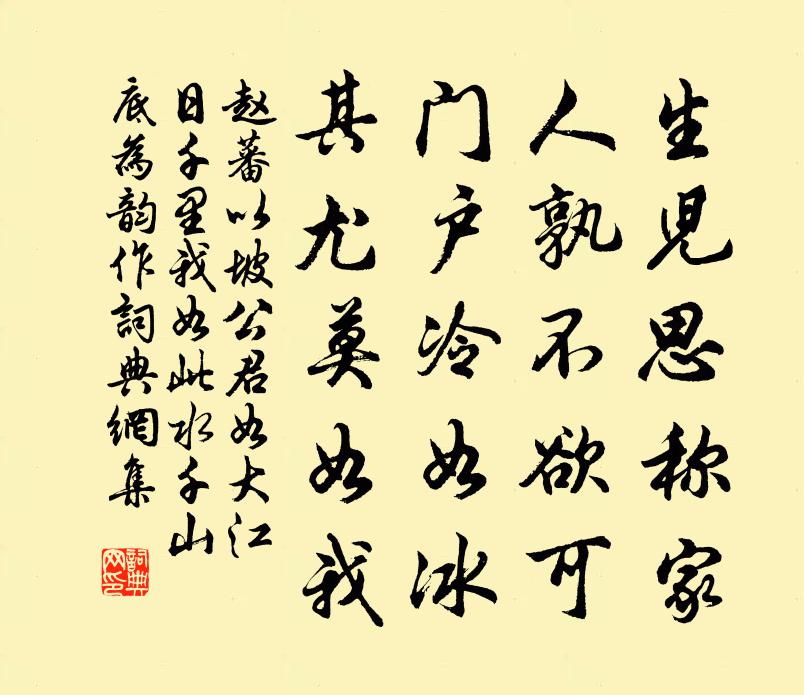 生児思称家
人孰不欲可
门户冷如冰
其尤莫如我
赵蕃以坡公君如大江
日千里我如此水千山
底為韵作詞典網集
詞典网印